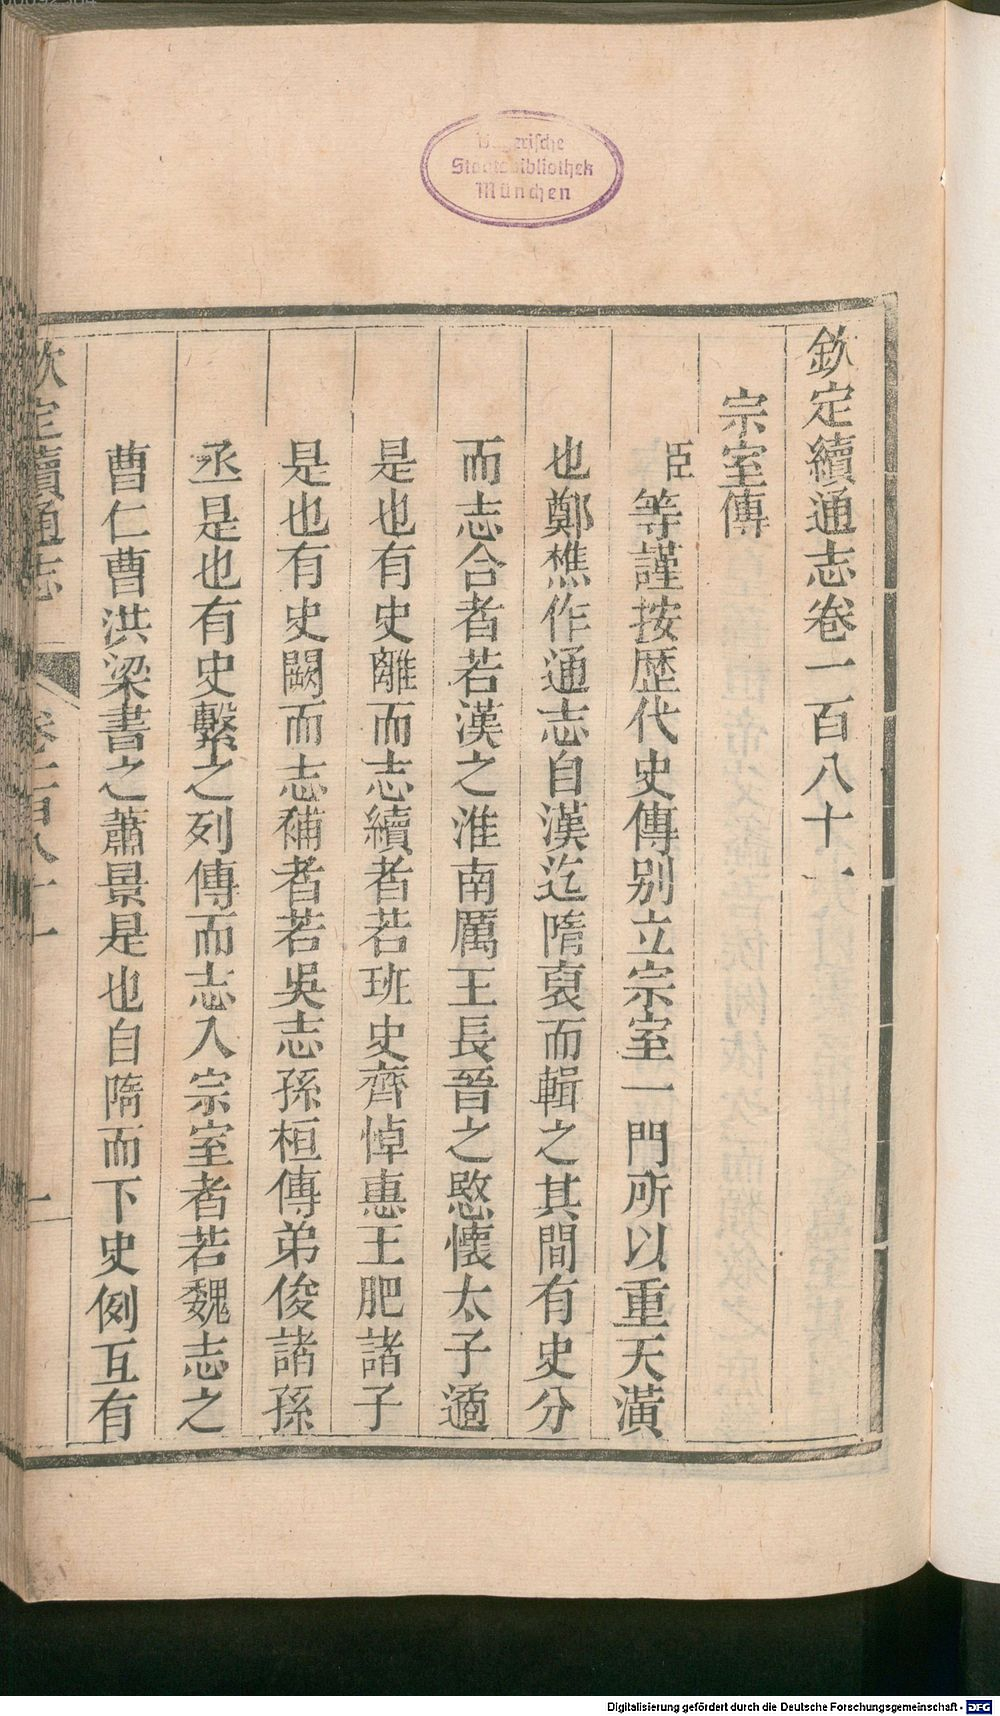 欽定續通志卷一百八十一
宗室傳
臣等謹按歴代史傳别立宗室一門所以重天潢
也鄭樵作通志自漢迄隋裒而輯之其間有史分
而志合者若漢之淮南厲王長晉之愍懷太子遹
是也有史離而志續者若班史齊悼惠王肥諸子
是也有史闕而志補者若吳志孫桓傳弟俊諸孫
丞是也有史繫之列傳而志入宗室者若魏志之
曹仁曹洪梁書之蕭景是也自隋而下史例互有
欽定續通志
卷一百八十一
一
Bayerische
Staatsbibliothek
München
Digitalisierung gefördert durch die Deutsche Forschungsgemeinschaft - DFG